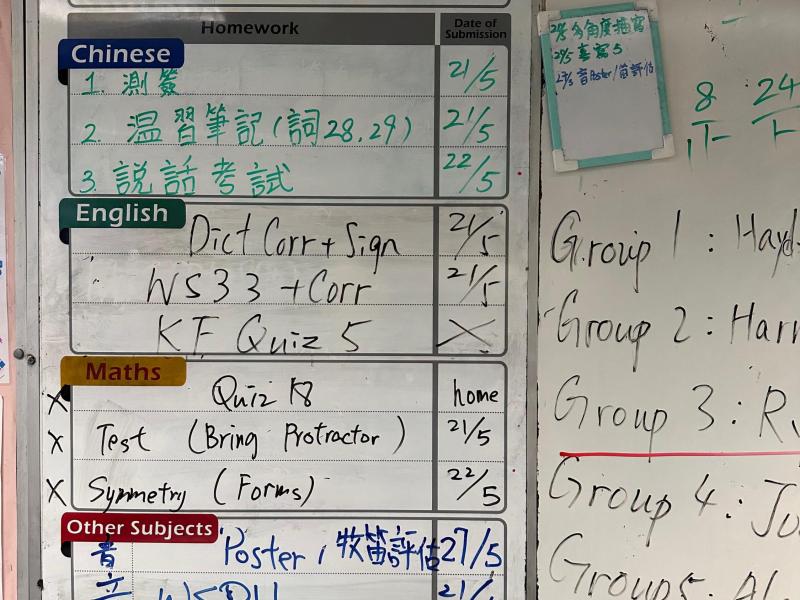 Homework
Date of Submission
Chinese
1. 測簽 21/5
2. 温習筆記(詞28,29) 21/5
3. 説話考試 22/5
English
Dict Corr + Sign 21/5
WS33 + Corr 21/5
KF Quiz 5 X
Maths
X Quiz 18 home
X Test (Bring Protractor) 21/5
X Symmetry (Forms) 22/5
Other Subjects
音 Poster, 牧笛評估 27/5
多角度描寫
27/5 音Poster/笛評估
8 24
Group 1 :
Group 2 :
Group 3 :
Group 4 :
Group 5.